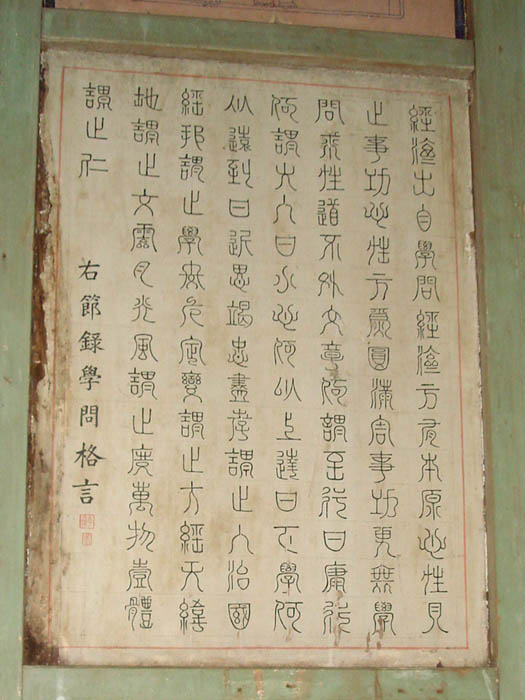 經濟出自學問經濟方有本原心性見
之事功心性方爲圓滿舍事功更無學
問求性道不外文章何謂至行曰庸行
何謂大人曰小心何以上達曰下學何
以遠到曰近思竭忠盡孝謂之人治國
經邦謂之學安危定變謂之才經天緯
地謂之文霽月光風謂之度萬物壹體
謂之仁
右節錄學問格言